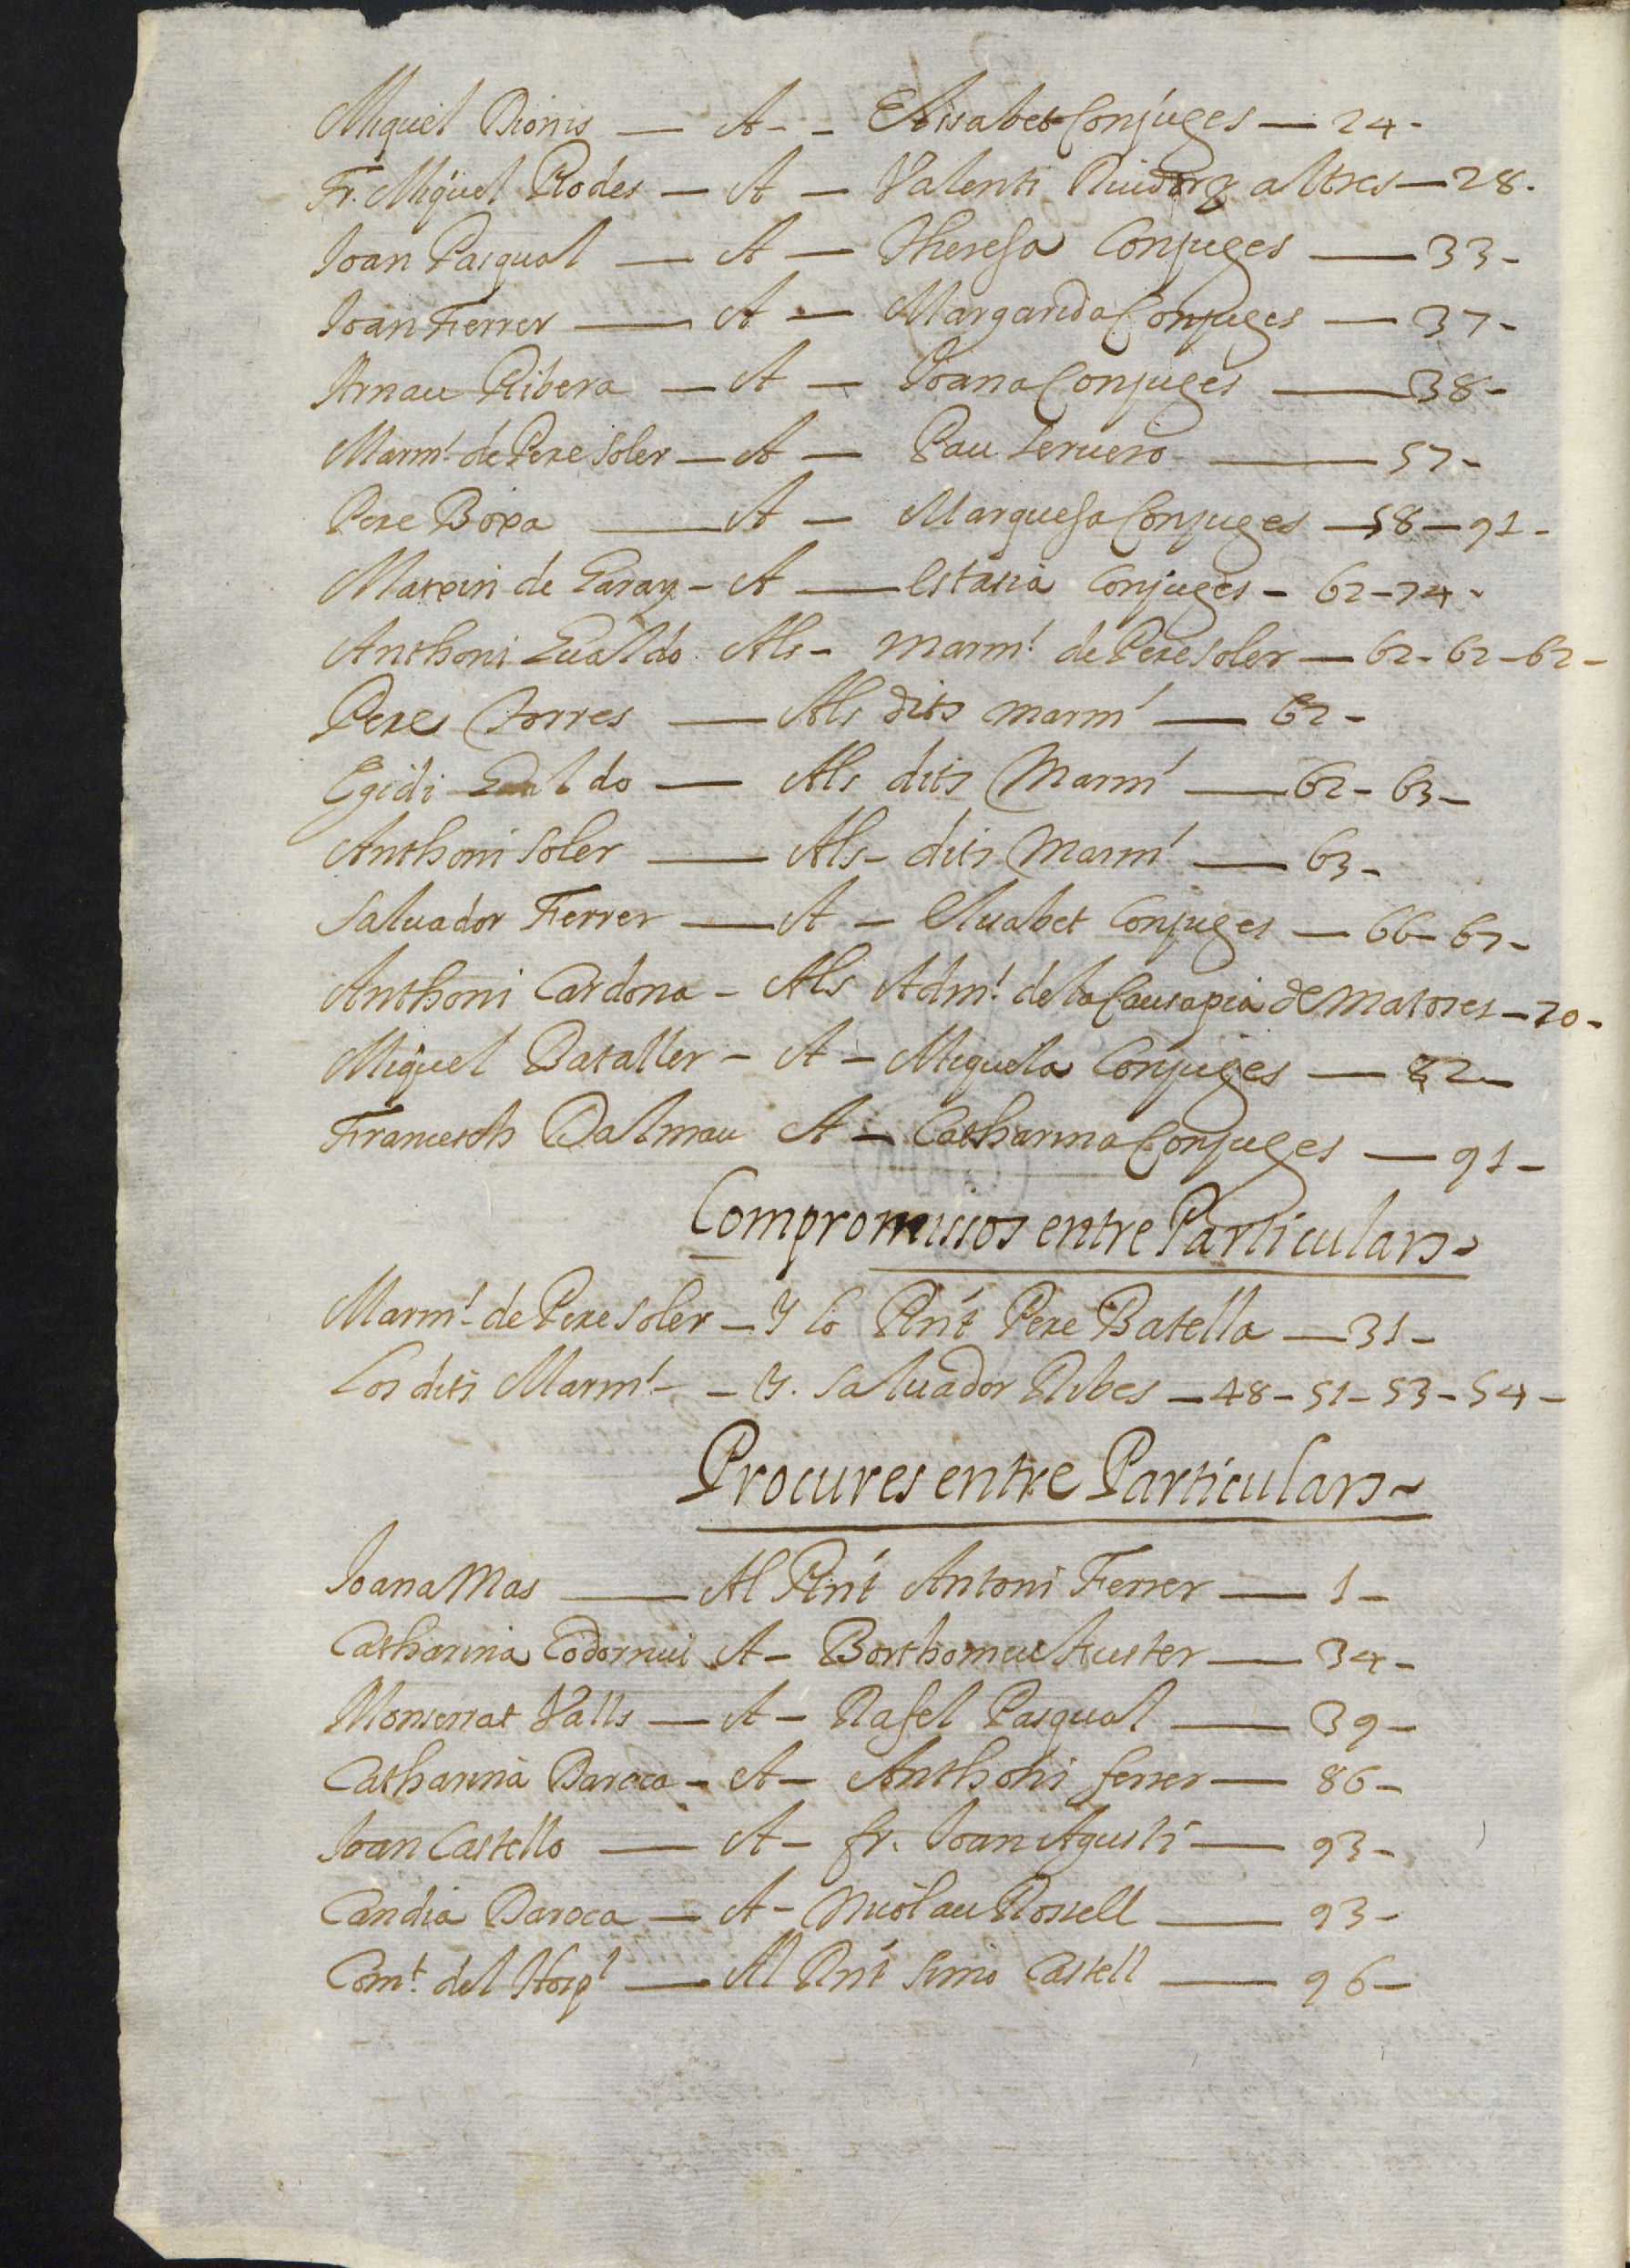 Miquel Dionis — A - - Elisabet Conjuges — 24 -
Fr. Miquel Rodes — A — Valenti altres — 28.
Joan Pasqual — A — Theresa Conjuges — 33 -
Joan Ferrer — A — Margarida Conjuges — 37 -
Arnau Ribera — A — Joana Conjuges — 38 -
Marm.ˢ de Pere Soler — A — Pau Servero — 57 -
Pere Boxa — A — Marquesa Conjuges — 58 — 91 -
de Garay - A — Estasia Conjuges - 62 - 74 -
Anthoni Gualdo Als - marm.ˢ de Pere Soler — 62 - 62 - 62 -
Pere Torres — Als dits marmˢ — 62 -
Egidi Gualdo — Als dits Marmˢ — 62 - 63 -
Anthoni Soler — Als - dits Marmˢ — 63 -
Saluador Ferrer — A — Elisabet Conjuges — 66 - 67 -
Anthoni Cardona - Als Adm.ˢ de la Causapia de Matoses — 70 -
Miquel Bataller - A - Miquela Conjuges — 82 -
Francesch Dalmau A — Catharina Conjuges — 91 -
Compromissos entre Particulars -
Marm.ˢ de Pere Soler — Y lo Rnt Pere Batella — 31 -
Los dits Marm.ˢ - - Y. Saluador Ribes — 48 - 51 - 53 - 54 -
Procures entre Particulars -
Joana Mas — Al Rnt Antoni Ferrer — 1 -
Catharina Codorniu A - Borthomeu Auster — 34 -
Monserrat Valls — A - Rafel Pasqual — 39 -
Catharina Daroca - A - Anthoni ferrer — 86 -
Joan Castello — A - fr. Joan Agusti — 93 -
Candia Daroca — A - Nicolau Rossell — 93 -
Com.ᵗ del Hospˡ — Al Rnt Simo Castell — 96 -